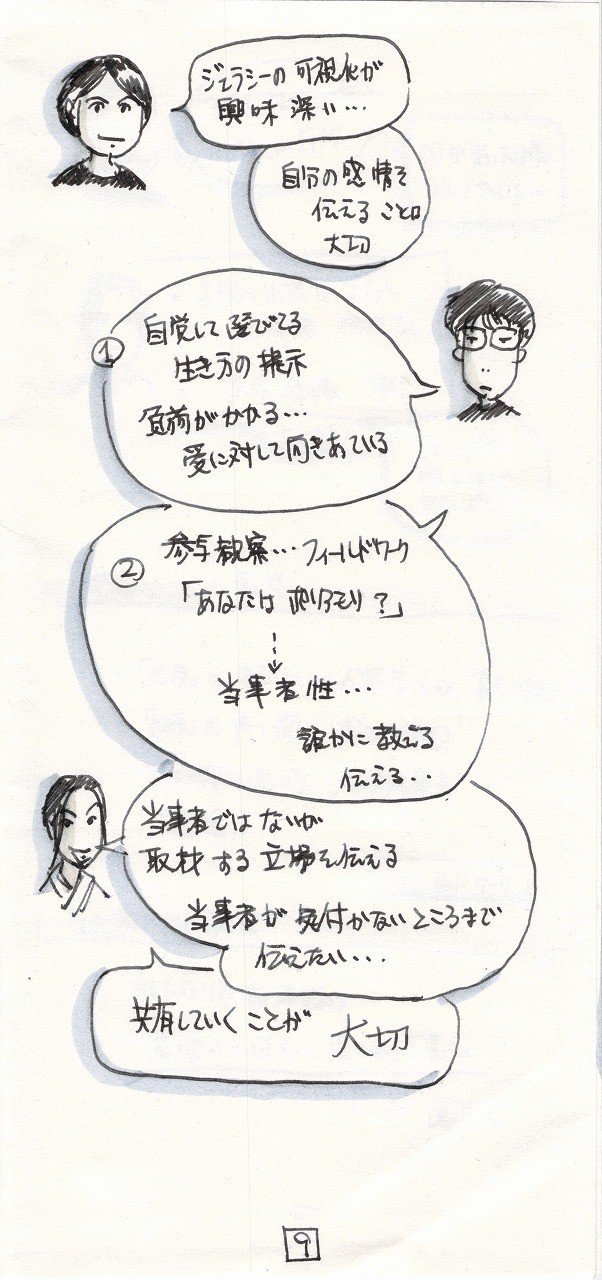 ジェラシーの可視化が
興味深い…
自分の感情を
伝えることは
大切
①
自覚して選びてる
生き方の提示
負荷がかかる…
愛に対して向きあている
②
参与観察…フィールドワーク
「あなたはポリアモリ?」
当事者性…
誰かに教える
伝える..
当事者ではないが
取材する立場を伝える
当事者が気付かないところまで
伝えたい...
共有していくことが
大切
9